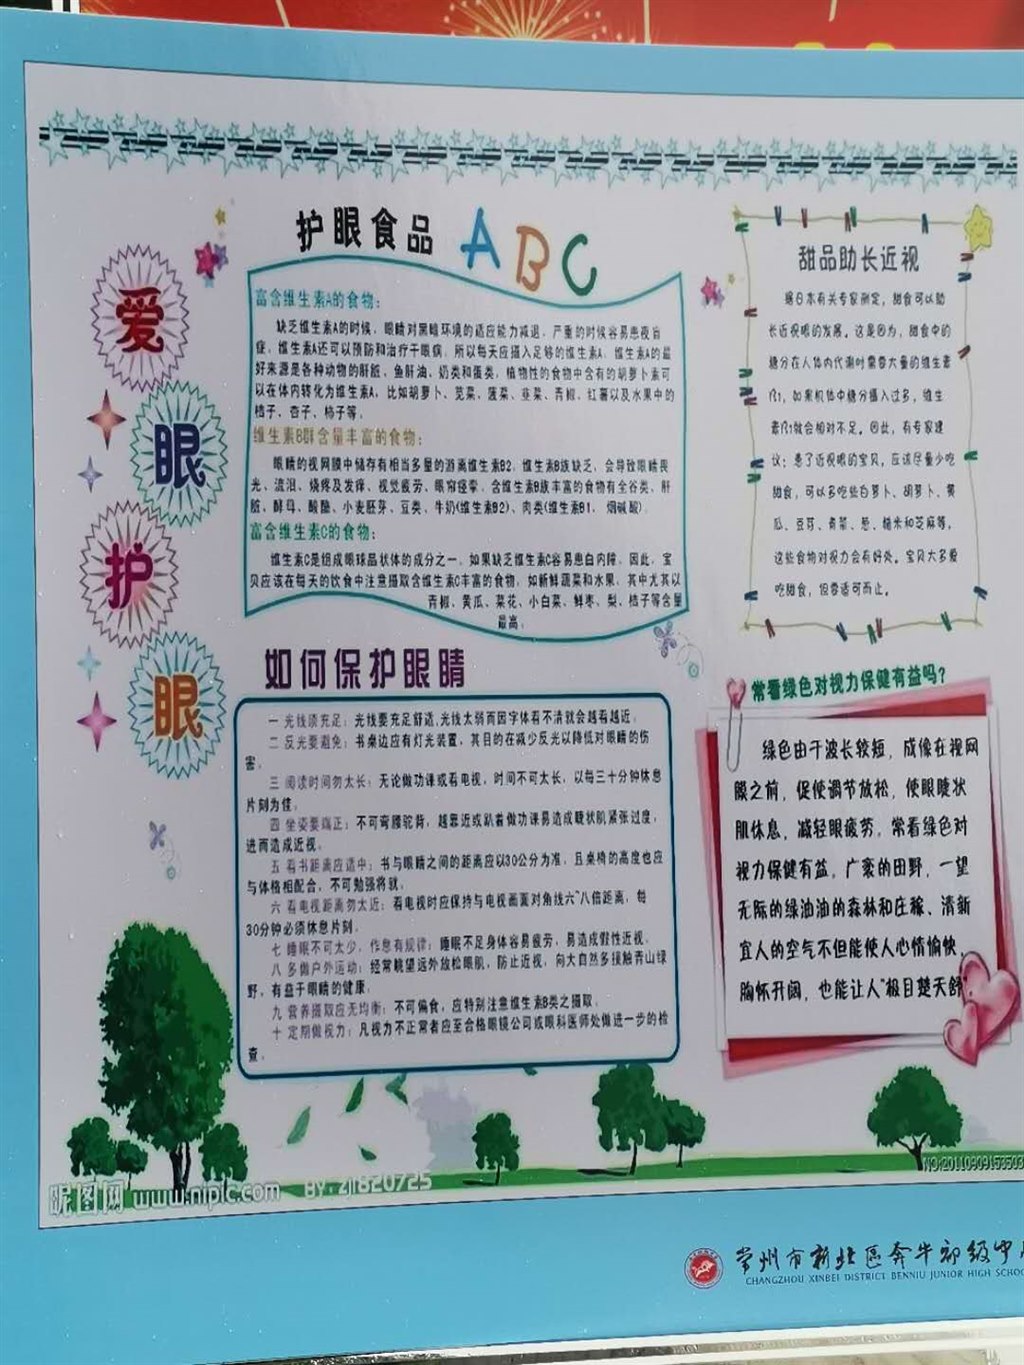 爱
眼
护
眼
护眼食品 ABC
富含维生素A的食物：
缺乏维生素A的时候，眼睛对黑暗环境的适应能力减退，严重的时候容易患夜盲
症，维生素A还可以预防和治疗干眼病，所以每天应摄入足够的维生素A，维生素A的最
好来源是各种动物的肝脏、鱼肝油、奶类和蛋类，植物性的食物中含有的胡萝卜素可
以在体内转化为维生素A，比如胡萝卜、苋菜、菠菜、韭菜、青椒、红薯以及水果中的
桔子、杏子、柿子等。
维生素B群含量丰富的食物：
眼睛的视网膜中储存有相当多量的游离维生素B2，维生素B族缺乏，会导致眼睛畏
光、流泪、烧疼及发痒、视觉疲劳、眼帘痉挛，含维生素B族丰富的食物有全谷类、肝
脏、酵母、酸酪、小麦胚芽、豆类、牛奶(维生素B2)、肉类(维生素B1、烟碱酸)。
富含维生素C的食物：
维生素C是组成眼球晶状体的成分之一，如果缺乏维生素C容易患白内障，因此，宝
贝应该在每天的饮食中注意摄取含维生素C丰富的食物，如新鲜蔬菜和水果，其中尤其以
青椒、黄瓜、菜花、小白菜、鲜枣、梨、桔子等含量
最高；
如何保护眼睛
一 光线须充足：光线要充足舒适，光线太弱而因字体看不清就会越看越近。
二 反光要避免：书桌边应有灯光装置，其目的在减少反光以降低对眼睛的伤
害。
三 阅读时间勿太长：无论做功课或看电视，时间不可太长，以每三十分钟休息
片刻为佳。
四 坐姿要端正：不可弯腰驼背，越靠近或趴着做功课易造成睫状肌紧张过度，
进而造成近视。
五 看书距离应适中：书与眼睛之间的距离应以30公分为准，且桌椅的高度也应
与体格相配合，不可勉强将就。
六 看电视距离勿太近：看电视时应保持与电视画面对角线六~八倍距离，每
30分钟必须休息片刻。
七 睡眠不可太少，作息有规律：睡眠不足身体容易疲劳，易造成假性近视。
八 多做户外运动：经常眺望远外放松眼肌，防止近视，向大自然多接触青山绿
野，有益于眼睛的健康。
九 营养摄取应无均衡：不可偏食，应特别注意维生素B类之摄取。
十 定期做视力：凡视力不正常者应至合格眼镜公司或眼科医师处做进一步的检
查。
甜品助长近视
据日本有关专家测定，甜食可以助
长近视眼的发展。这是因为，甜食中的
糖分在人体内代谢时需要大量的维生素
B1，如果机体中糖分摄入过多，维生
素B1就会相对不足。因此，有专家建
议：患了近视眼的宝贝，应该尽量少吃
甜食，可以多吃些白萝卜、胡萝卜、黄
瓜、豆芽、青菜、葱、糙米和芝麻等，
这些食物对视力会有好处。宝贝大多爱
吃甜食，但要适可而止。
常看绿色对视力保健有益吗？
绿色由于波长较短，成像在视网
膜之前，促使调节放松，使眼睫状
肌休息，减轻眼疲劳，常看绿色对
视力保健有益，广袤的田野，一望
无际的绿油油的森林和庄稼、清新
宜人的空气不但能使人心情愉快，
胸怀开阔，也能让人"极目楚天舒
昵图网 www.nipic.com BY:zj820725
NO:2011090915350
常州市新北区奔牛初级中
CHANGZHOU XINBEI DISTRICT BENNIU JUNIOR HIGH SCHOO